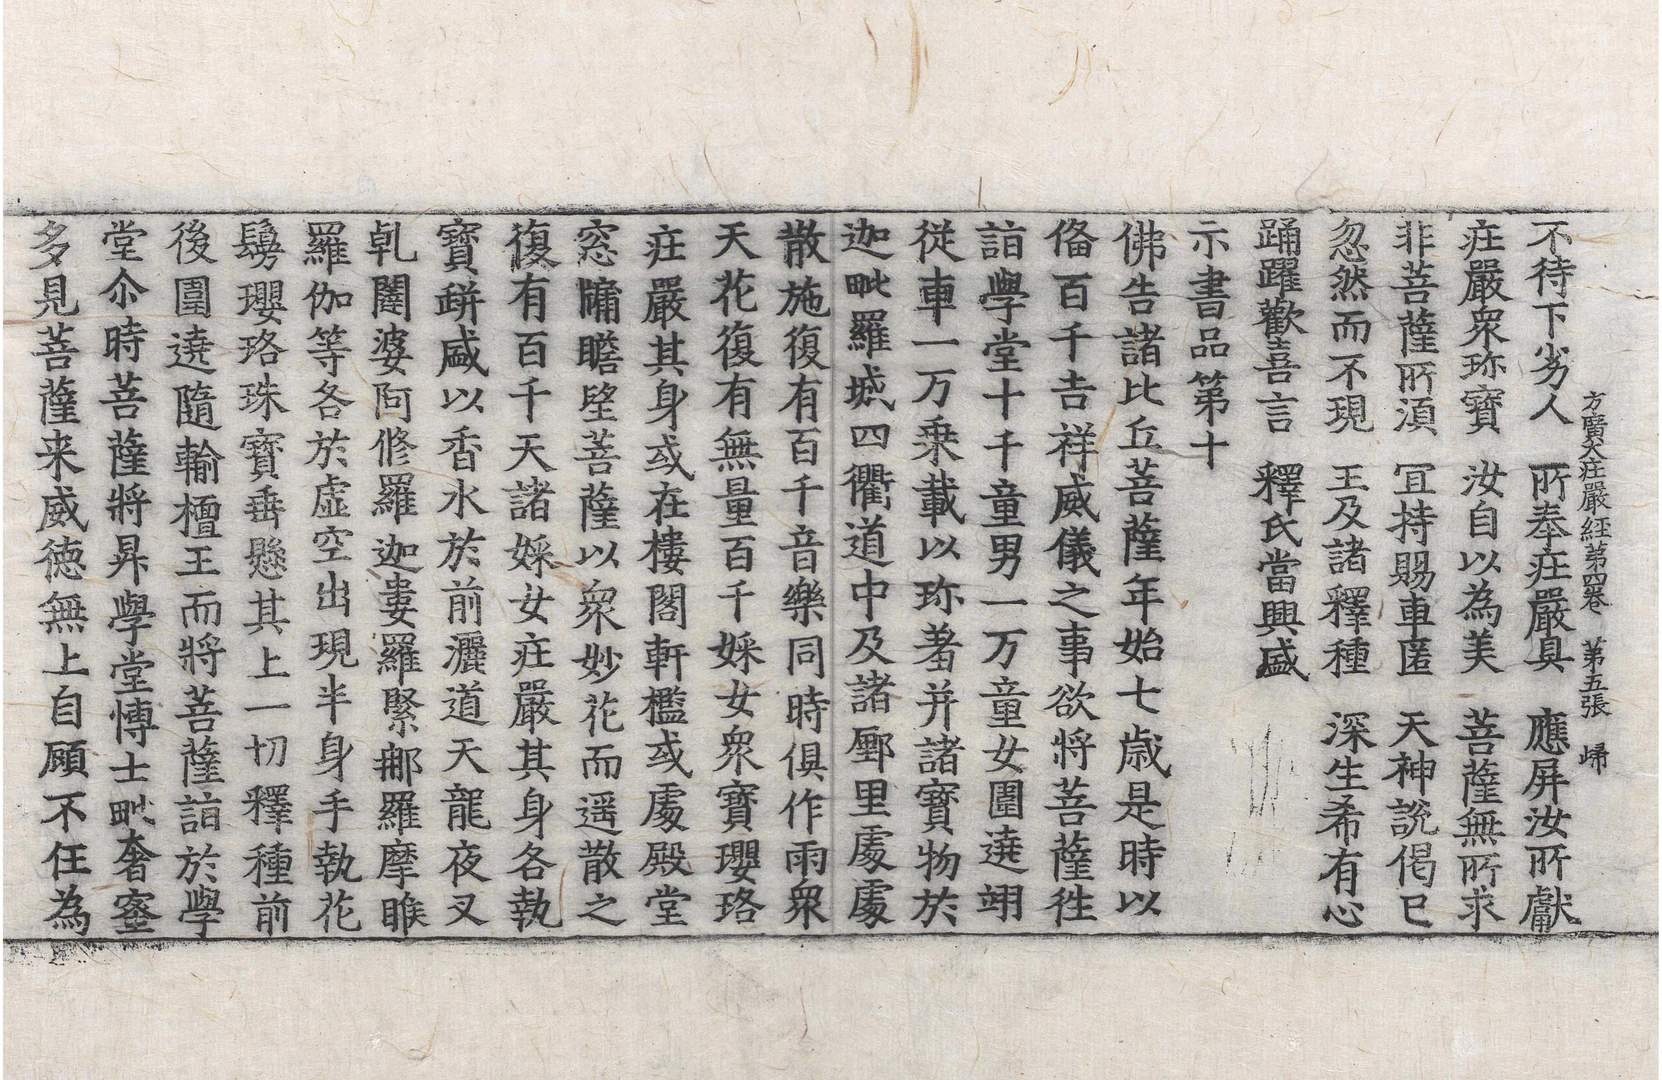 方廣大庄嚴經第四卷 第五張 㱕
不待下劣人 所奉庄嚴具 應屏汝所獻
庄嚴衆珎寶 汝自以為美 菩薩無所求
非菩薩所湏 宜持賜車匿 天神說偈已
忽然而不現 王及諸釋種 深生希有心
踊躍歡喜言 釋氏當興盛
示書品第十
佛告諸比丘菩薩年始七歲是時以
俻百千吉祥威儀之事欲將菩薩徃
詣學堂十千童男一万童女圍遶翊
從車一万乗載以珎羞并諸寶物於
迦毗羅城四衢道中及諸㕓里處處
散施復有百千音樂同時俱作雨衆
天花復有無量百千婇女衆寶瓔珞
庄嚴其身或在樓閣軒檻或處殿堂
窓牖瞻望菩薩以衆妙花而遥散之
復有百千天諸婇女庄嚴其身各執
寶缾盛以香水於前灑道天龍夜叉
乹闥婆阿修羅迦婁羅緊那羅摩睺
羅伽等各於虛空出現半身手執花
鬘瓔珞珠寶垂懸其上一切釋種前
後圍遶隨輸檀王而將菩薩詣於學
堂尒時菩薩將昇學堂愽士毗奢蜜
多見菩薩来威徳無上自顧不任為